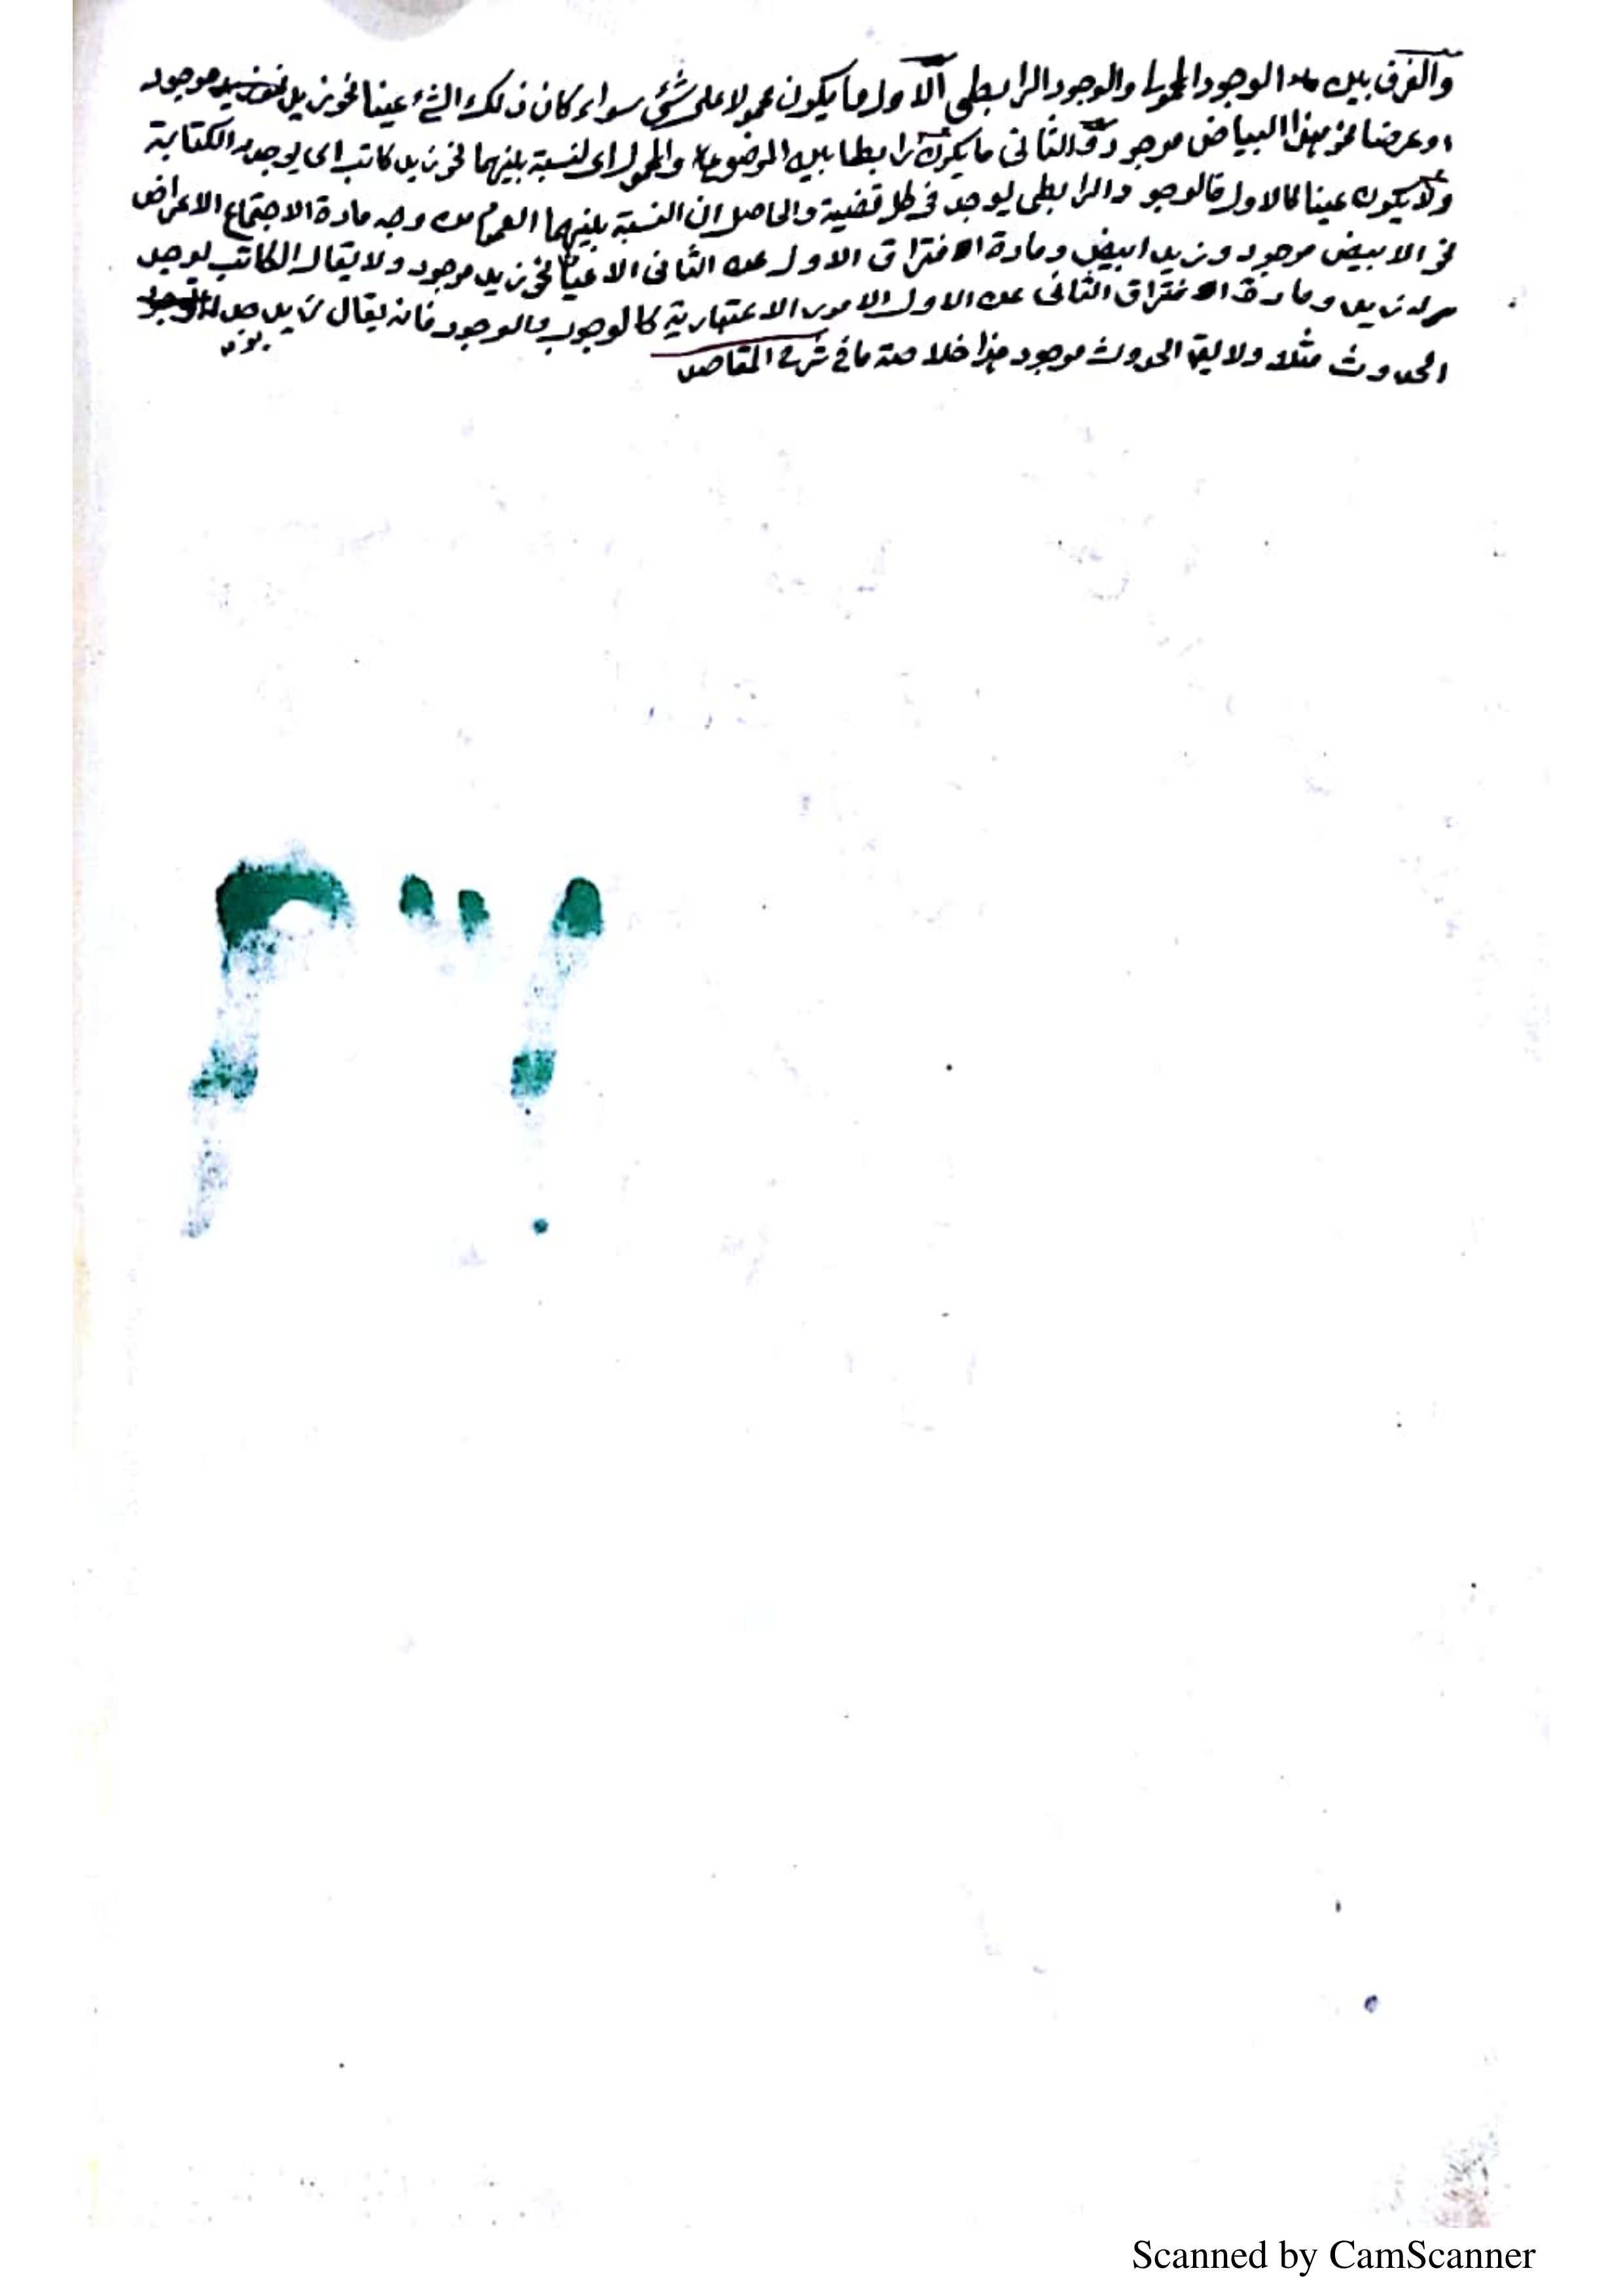 والفرق بين الوجود المحمولي والوجود الرابطي الاول ما يكون محمولا على شئ سواء كان ذلك الشئ عينا نحو زيد موجود
او عرضا نحو هذا البياض موجود والثاني ما يكون رابطا بين الموضوع والمحمول اى لنسبة بينهما نحو زيد كاتب اى يوجد له الكتابة
ولا يكون عينا كالاول فالوجود الرابطي يوجد في كل قضية والحاصل ان النسبة بينهما العموم من وجه مادة الاجتماع الاعراض
نحو الابيض موجود وزيد ابيض ومادة الافتراق الاول عن الثاني الاعيان نحو زيد موجود ولا يقال الكاتب يوجد
له زيد ومادة الافتراق الثاني عن الاول الامور الاعتبارية كالوجوب والوجود فانه يقال زيد يوجد له
الحدوث مثلا ولا يق الحدوث موجود هذا خلاصة ما في شرح المقاصد
Scanned by CamScanner